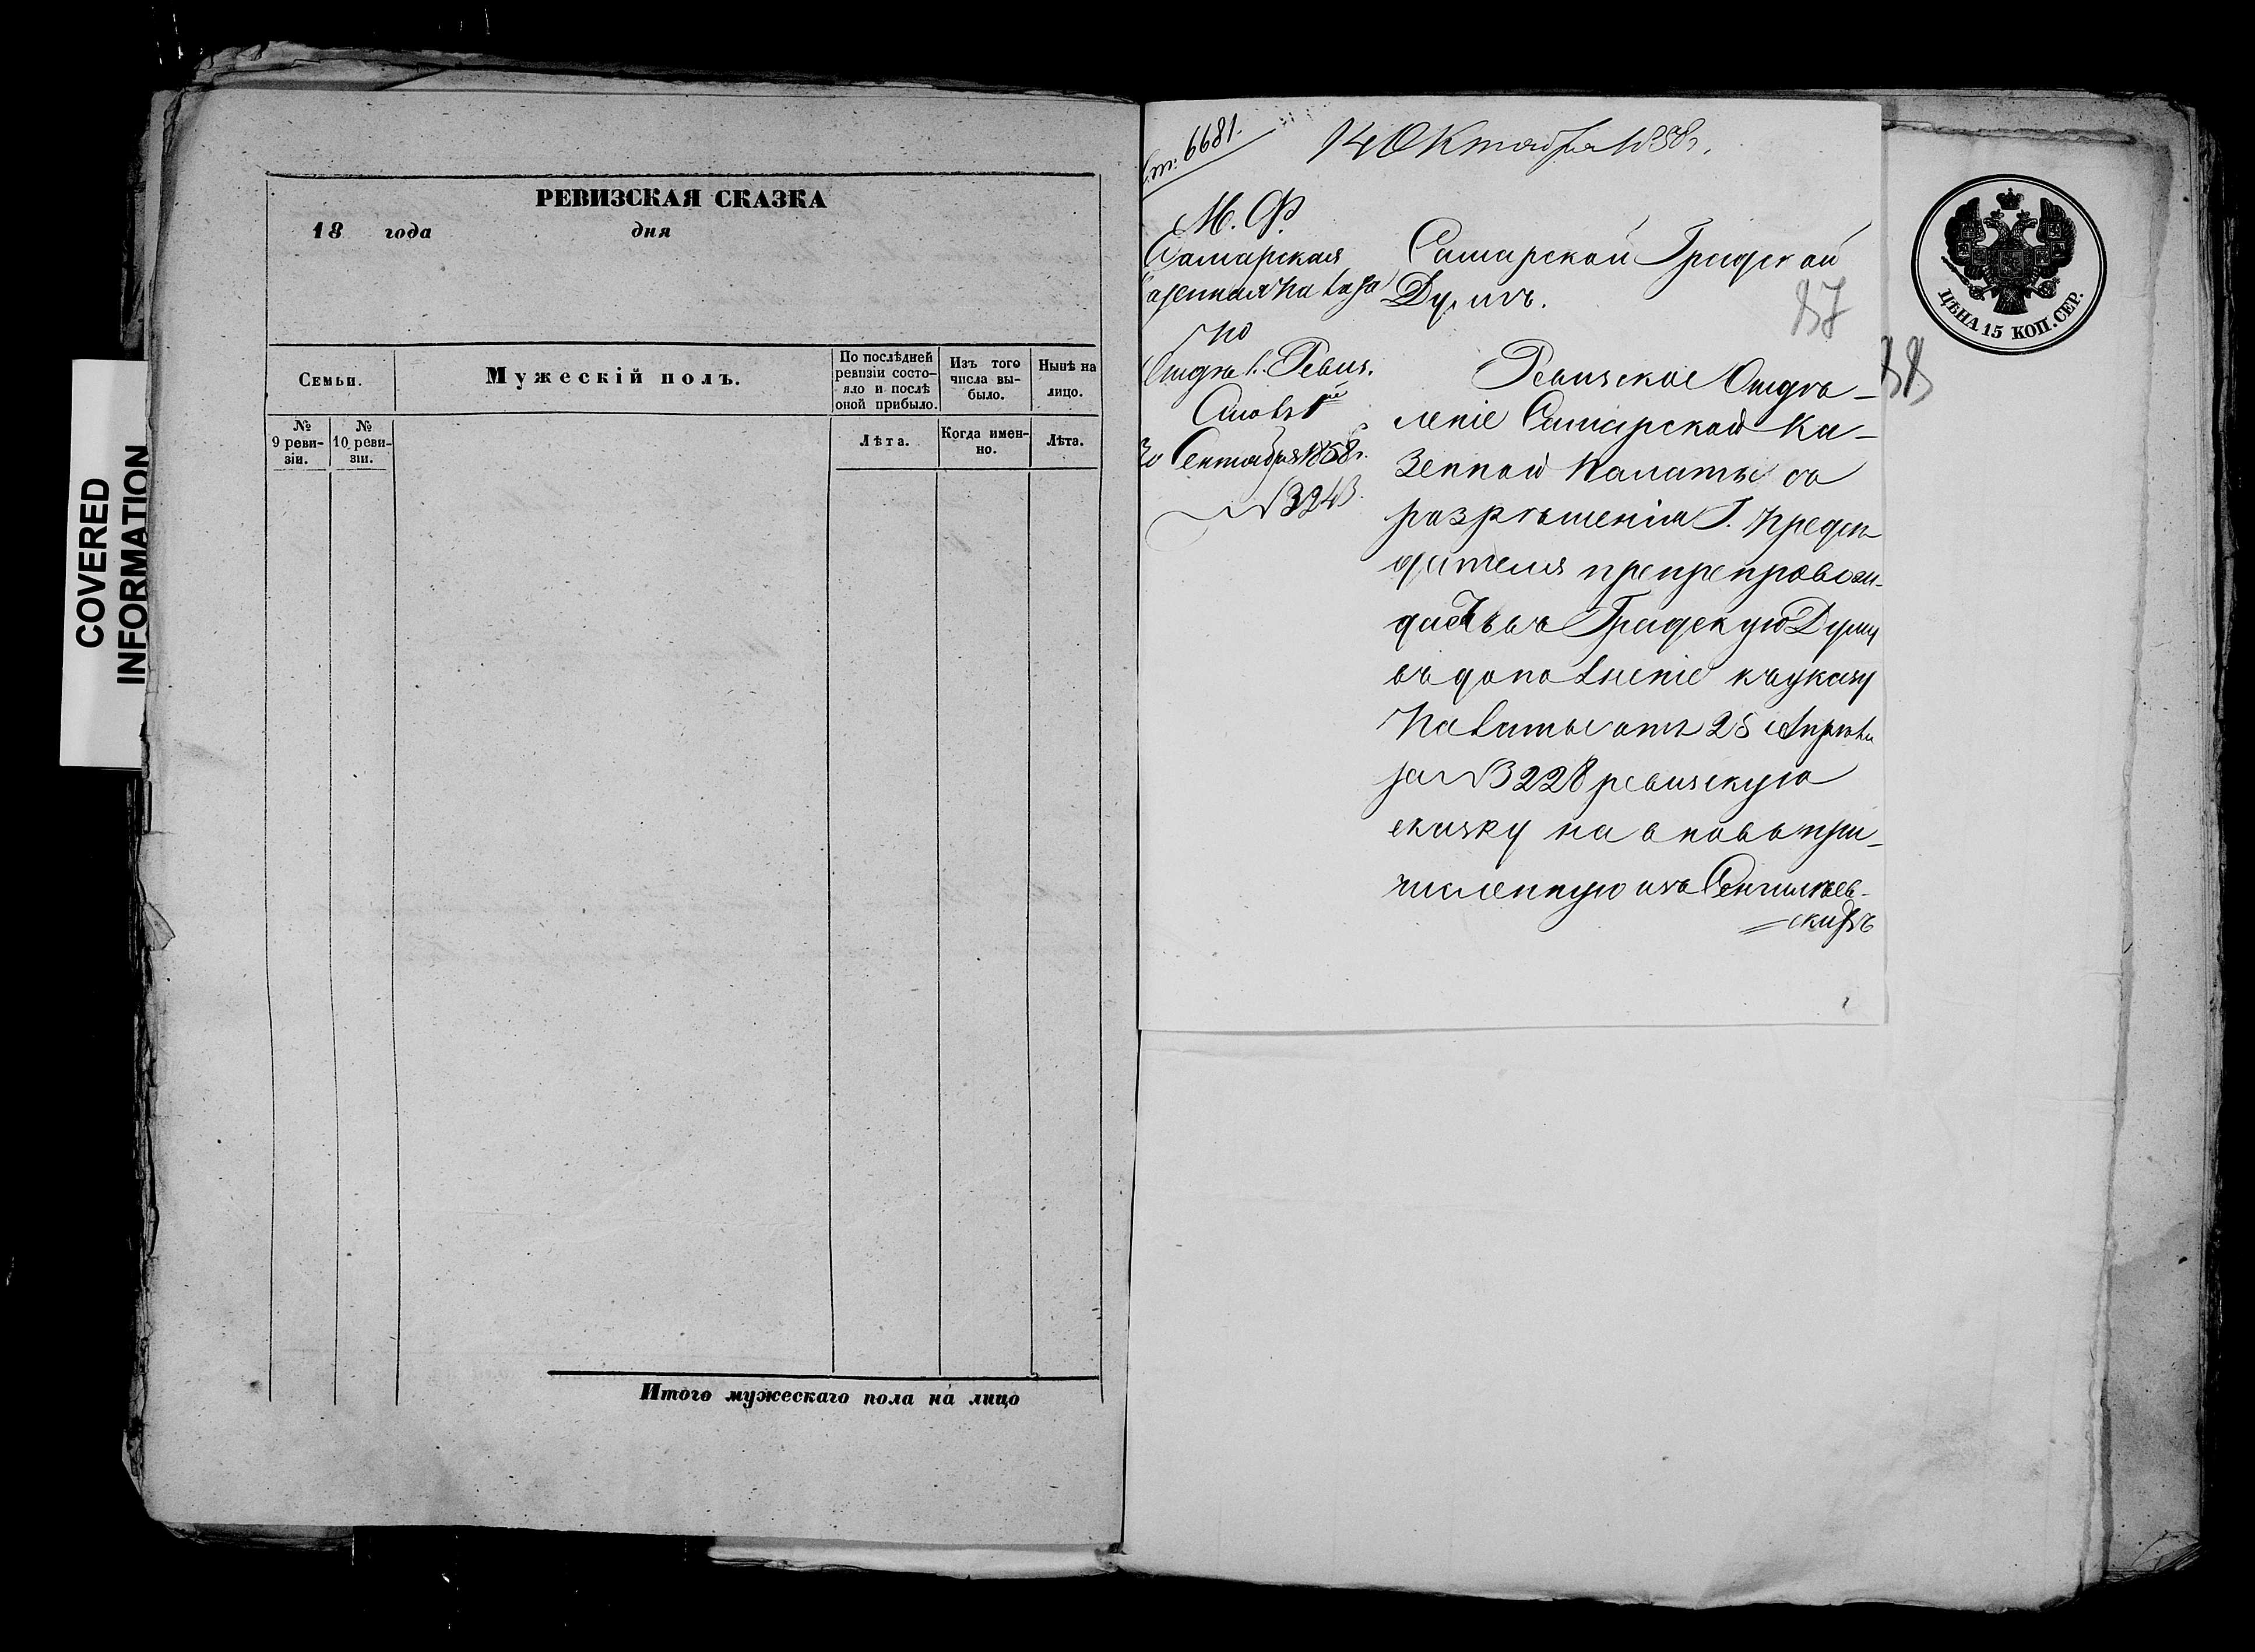 COVERED
INFORMATION
РЕВИЗСКАЯ СКАЗКА
18 года дня
Семьи.
Мужескій полъ.
По послѣдней
ревизіи состо-
яло и послѣ
оной прибыло.
Изъ того
числа вы-
было.
Нынѣ на
лицо.
№
9 реви-
зіи.
№
10 реви-
зіи.
Лѣта.
Когда имен-
но.
Лѣта.
Итого мужескаго пола на лицо
6681.
14 Октября 1858 г.
М. Ф.
Самарская
Казенная Палата
По
Отдѣл. Ревиз.
Столъ 1й
30 Сентября 1858 г.
№ 3243.
Самарской Градской
Думѣ.
87
Ревизское Отдѣ-
леніе Самарской Ка-
зенной Палаты съ
разрѣшенія Г. Предсѣ
дателя препровож-
даетъ въ Градскую Думу
въ дополненіе къ указу
Палаты отъ 25 Апрѣля
за № 3228 ревизскую
сказку на вновь при-
численную изъ Сенгилеев-
скихъ
88
ЦѢНА 15 КОП. СЕР.